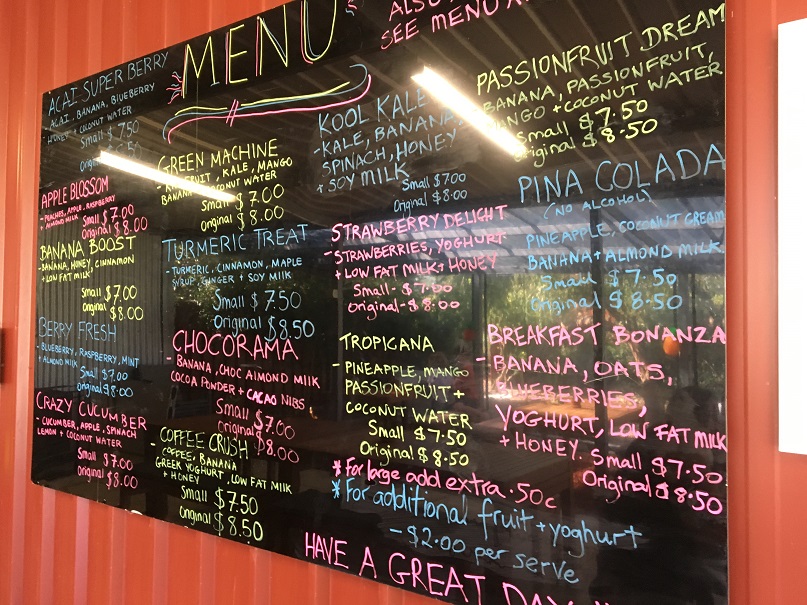 MENU
ALSO
SEE MENU
ACAI SUPER BERRY
ACAI, BANANA, BLUEBERRY
HONEY + COCONUT WATER
Small $7.50
APPLE BLOSSOM
- PEACHES, APPLE, RASPBERRY
+ ALMOND MILK
Small $7.00
Original $8.00
BANANA BOOST
- BANANA, HONEY, CINNAMON
+ LOW FAT MILK
Small $7.00
Original $8.00
BERRY FRESH
- BLUEBERRY, RASPBERRY, MINT
+ ALMOND MILK
Small $7.00
Original $8.00
CRAZY CUCUMBER
- CUCUMBER, APPLE, SPINACH
LEMON + COCONUT WATER
Small $7.00
Original $8.00
GREEN MACHINE
, KALE, MANGO
BANANA COCONUT WATER
Small $7.00
Original $8.00
TURMERIC TREAT
- TURMERIC, CINNAMON, MAPLE
SYRUP, GINGER + SOY MILK
Small $7.50
Original $8.50
CHOCORAMA
- BANANA, CHOC ALMOND MILK
COCOA POWDER + CACAO NIBS
Small $7.00
Original $8.00
COFFEE CRUSH
- COFFEE, BANANA
GREEK YOGHURT, LOW FAT MILK
+ HONEY
Small $7.50
Original $8.50
KOOL KALE
- KALE, BANANA,
SPINACH, HONEY
+ SOY MILK
Small $7.00
Original $8.00
STRAWBERRY DELIGHT
- STRAWBERRIES, YOGHURT
+ LOW FAT MILK + HONEY
Small - $7.50
Original - $8.00
TROPICANA
- PINEAPPLE, MANGO
PASSIONFRUIT +
COCONUT WATER
Small $7.50
Original $8.50
PASSIONFRUIT DREAM
- BANANA, PASSIONFRUIT,
MANGO + COCONUT WATER
Small $7.50
Original $8.50
PINA COLADA
(NO ALCOHOL)
PINEAPPLE, COCONUT CREAM
BANANA + ALMOND MILK
Small $7.50
Original $8.50
BREAKFAST BONANZA
- BANANA, OATS,
BLUEBERRIES,
YOGHURT, LOW FAT MILK
+ HONEY. Small $7.50
Original $8.50
* For large add extra .50c
* For additional fruit + yoghurt
- $2.00 per serve
HAVE A GREAT DAY